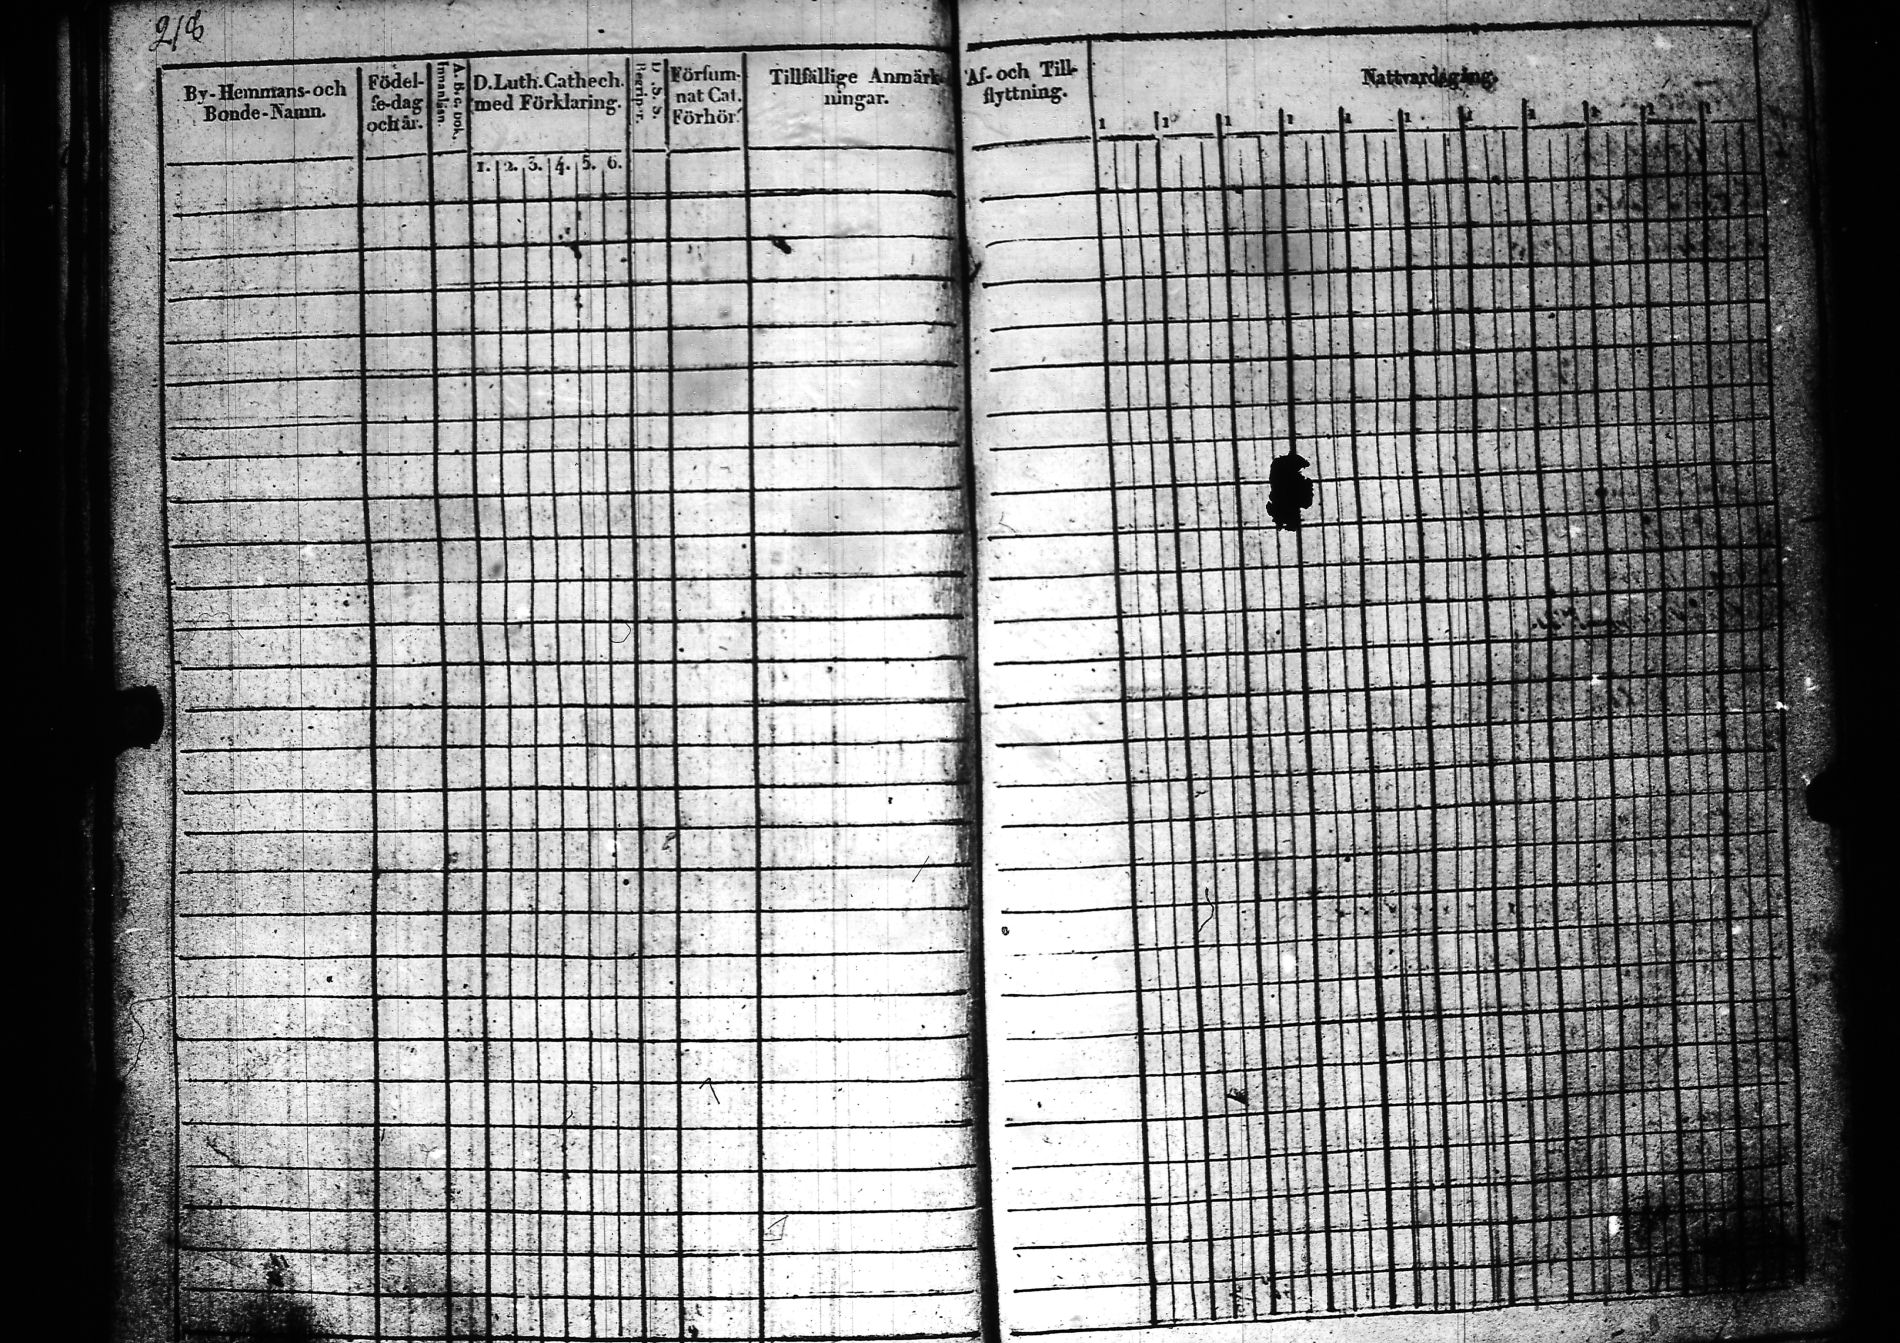 218
By-Hemmans-och
Bonde-Namn.
Födel-
se-dag
och år.
A. B. C. bok.
Innanläsn.
D. Luth. Cathech.
med Förklaring.
1. 2. 3. 4. 5. 6.
Begrip:r.
Försum-
nat Cat.
Förhör.
Tillfällige Anmärk-
ningar.
Af- och Till-
flyttning.
Nattvardsgång.
1 1 1 1 1 1 1 1 1 1 1